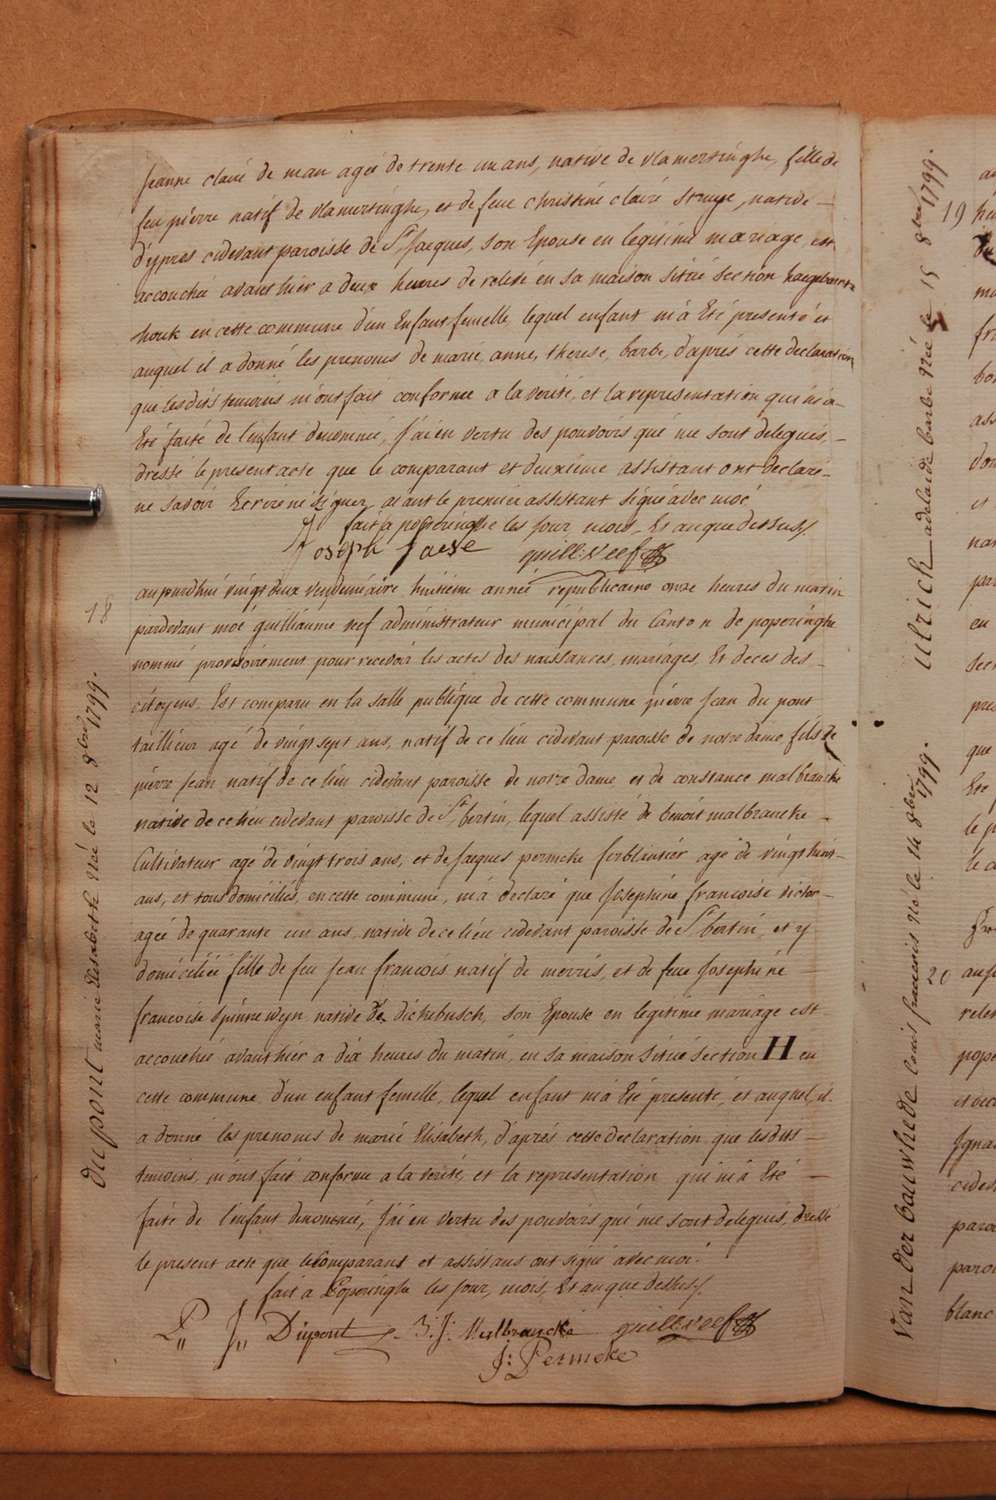 Jeanne claire de man agée de trente un ans, native de vlamertinghe, fille de
feu pierre natif de vlamertinghe, et de feue christine claire struye, native
d'ypres cidevant paroisse de St Jacques, son Epouse en legitime mariage, est
accouchée avanthier a deux heures de relevé en sa maison situé section
houk en cette commune d'un Enfant femelle, lequel enfant m'à Eté presenté et
auquel il a donné les prenoms de marie, anne, therese, barbe, d'aprés cette declaration
que lesdits temoins m'ont fait conforme a la verité, et la representation qui m'a
Eté faite de l'enfant denommé, J'ai en vertu des pouvoirs qui me sont delegués,
dressé le present acte que le comparant et deuxième assistant ont declaré
ne savoir Ecrire ni signer, aiant le premier assistant signé avec moé
fait à poperinghe les jour mois Et an que dessus
Joseph guill. neef
18
du pont marie Elisabeth Née le 12 8bre 1799.
aujourdhui vingt deux vendemiaire huitieme année republicaine onze heures du matin
pardevant moé guillaume neef administrateur municipal du Canton de poperinghe
nommé provisoirement pour recevoir les actes des naissances, mariages, Et deces des
citoyens, Est comparu en la salle publique de cette commune pierre Jean du pont
tailleur agé de vingt sept ans, natif de ce lieu cidevant paroisse de notre dame, fils de
pierre Jean natif de ce lieu cidevant paroisse de notre dame, et de constance malbrancke
native de ce lieu cidevant paroisse de St bertin, lequel assisté de benoit malbrancke
Cultivateur agé de vingt trois ans, et de Jacques permeke ferblantier agé de vingt huit
ans, et tous domiciliés, en cette commune, m'a declaré que Josephine francoise victor
agée de quarante un ans, native de ce lieu cidevant paroisse de St bertin, et y
domiciliée fille de feu Jean francois natif de merris, et de feue Josephine
francoise spinnewyn, native de dickebusch, son Epouse en legitime mariage est
accouchée avanthier a dix heures du matin, en sa maison situé section H en
cette commune d'un enfant femelle, lequel enfant m'à Eté presenté, et auquel il
a donné les prenoms de marie Elisabeth, d'aprés cette declaration que lesdits
temoins, m'ont fait conforme a la verité, et la representation qui m'à Eté
faite de l'enfant denommé, J'ai en vertu des pouvoirs qui me sont delegués, dressé
le present acte que le comparant et assistans ont signé avec moi.
fait à Poperinghe les jour, mois, Et an que dessus
P J Dupont B: J: Malbrancke guill. neef
J: Permeke
ullrich adelaide barbe Née le 15 8bre 1799.
19
van der bauwhede louis francois né le 14 8bre 1799.
20